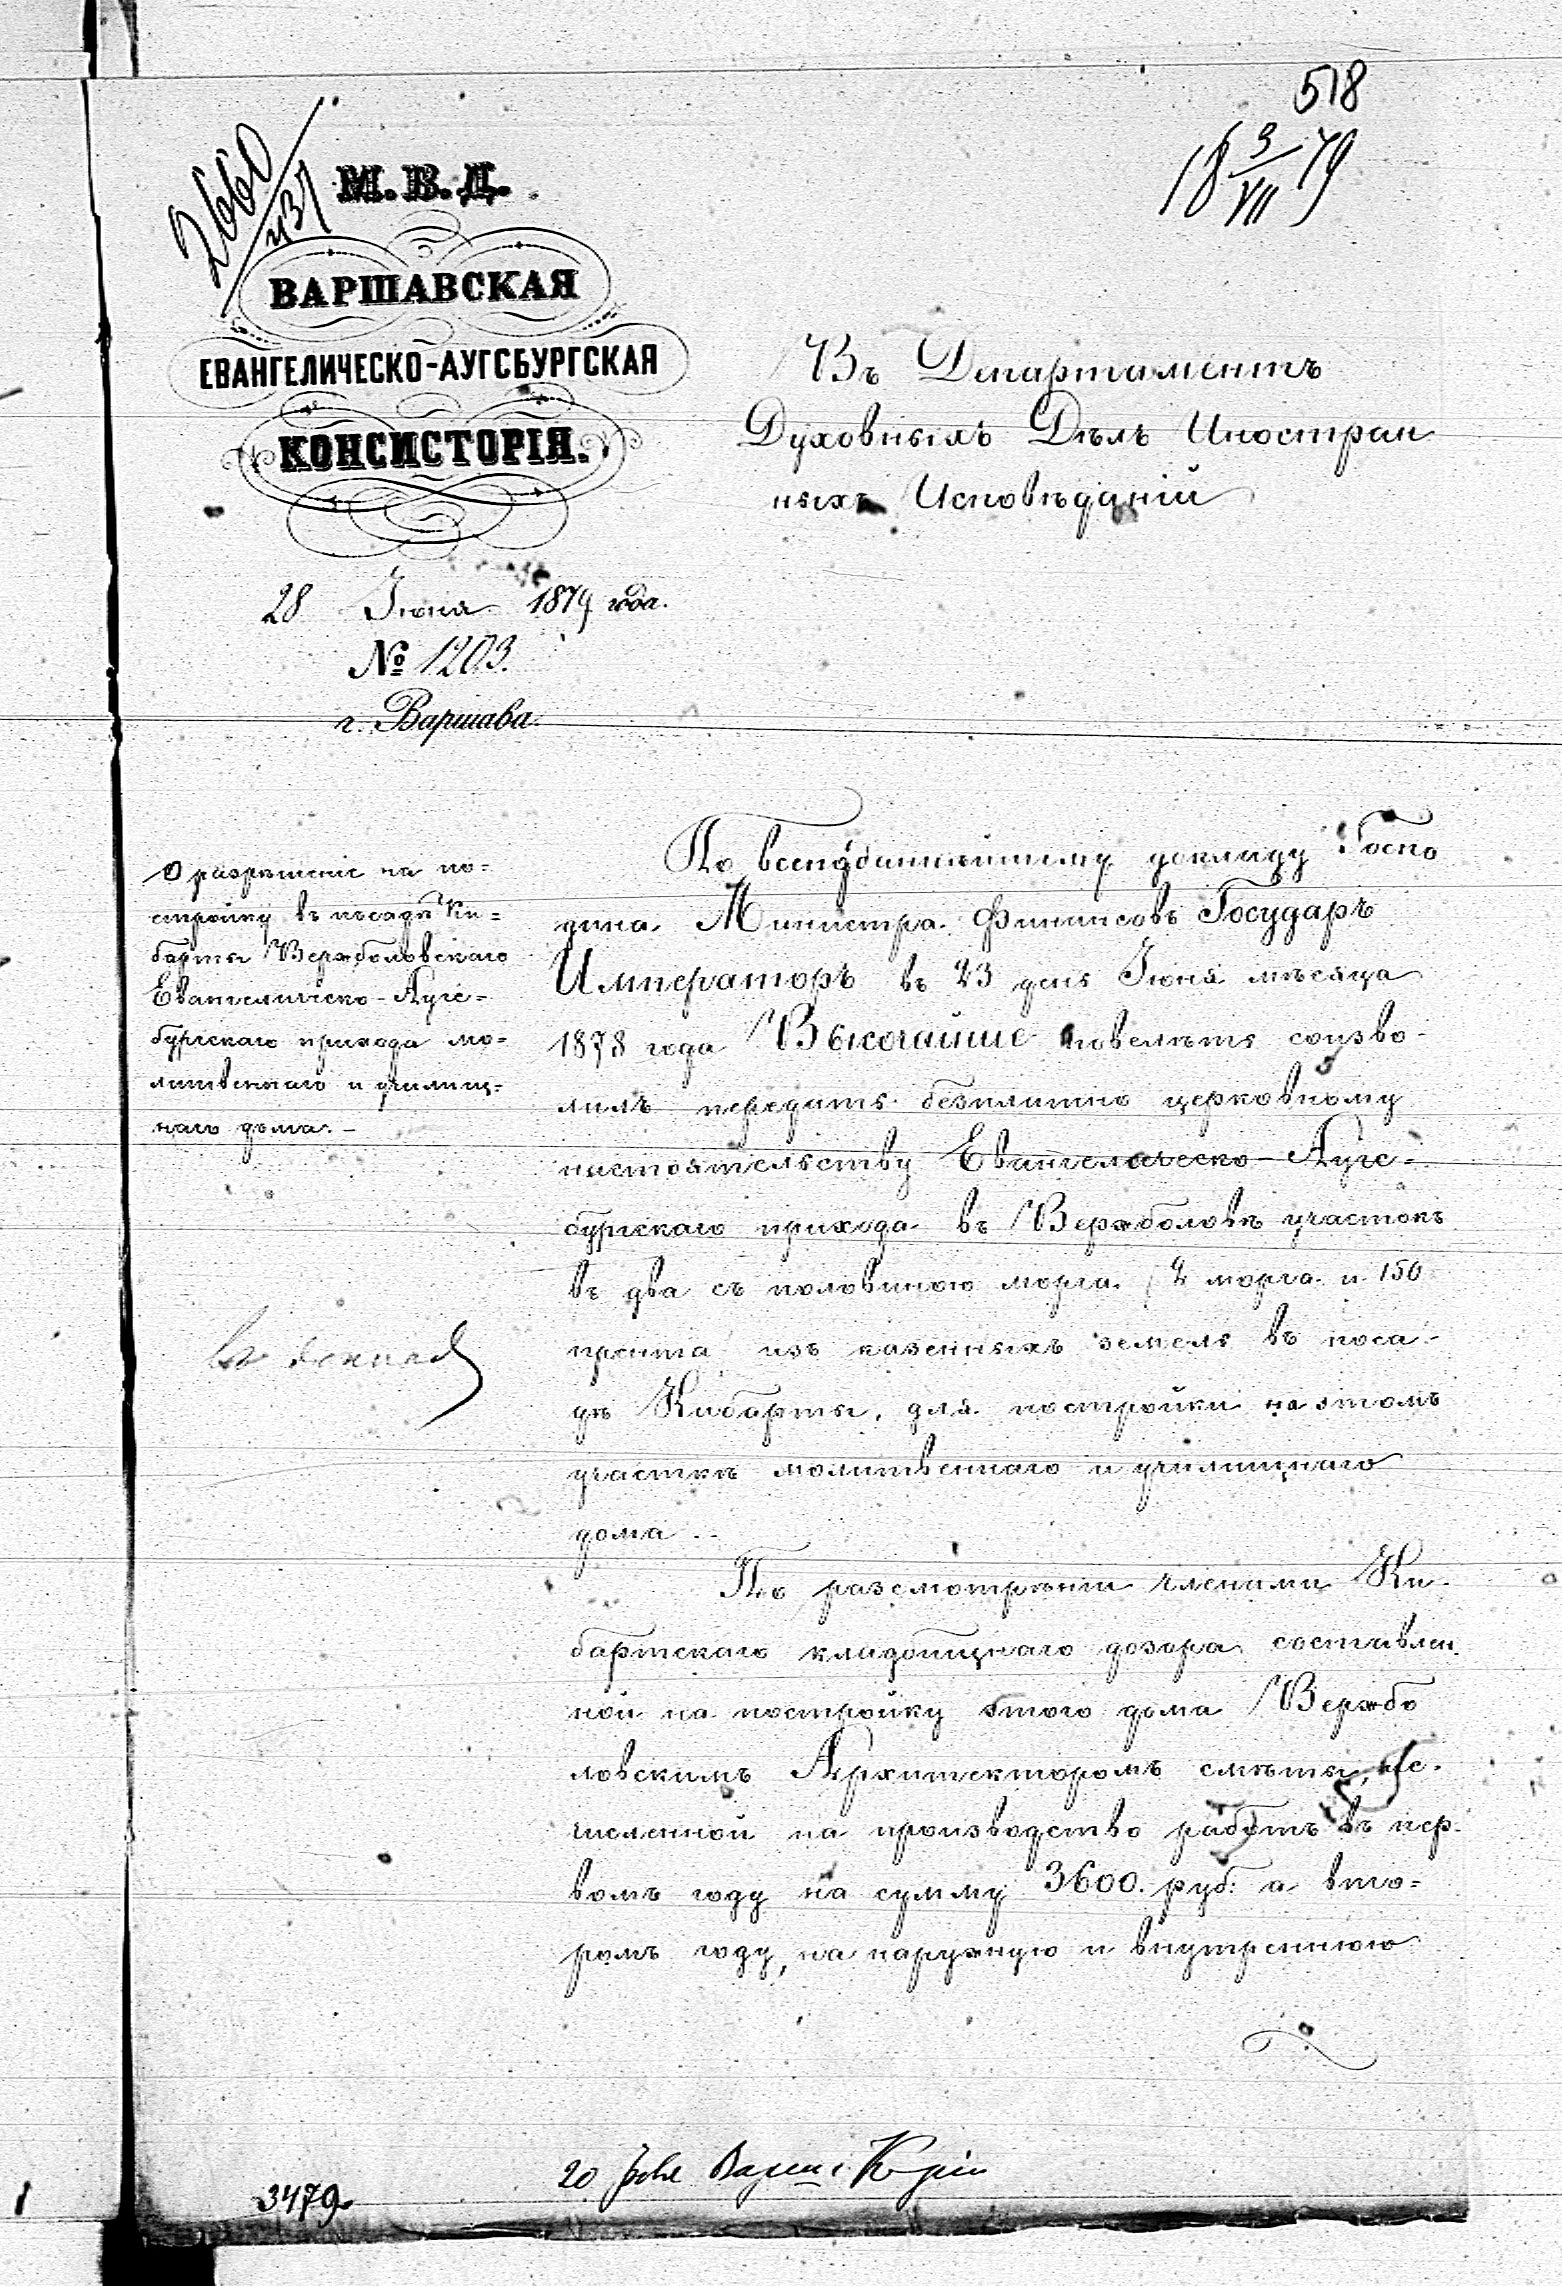 518
18 3/VII 79
2660
М.В.Д.
ВАРШАВСКАЯ
ЕВАНГЕЛИЧЕСКО-АУГСБУРГСКАЯ
КОНСИСТОРІЯ.
28 Іюня 1879 года.
№ 1203.
г. Варшава.
Въ Департаментъ
Духовныхъ Дѣлъ Иностран
ныхъ Исповѣданій
О разрѣшеніе на по=
стройку въ посадѣ Ки=
барты Вержболовскаго
Евангелическо-Аугс=
бургскаго прихода мо=
литвеннаго и училищ=
наго дома.-
По всеподданнѣйшему докладу Госпо
дина Министра Финансовъ Государь
Императоръ въ 23 день Іюня мѣсяца
1878 года Высочайше повелѣть соизво-
лилъ передать безплатно церковному
настоятельству Евангелическо-Аугс=
бургскаго прихода въ Вержболовѣ участокъ
въ два съ половиною морга (2 морга и 150
прента изъ казенныхъ земель въ поса-
дѣ Кибарты, для постройки на этомъ
участкѣ молитвеннаго и училищнаго
дома.-
По разсмотрѣніи членами Ки-
бартскаго кладбищнаго дозора составлен
ной на постройку этого дома Вержбо
ловскимъ Архитекторомъ смѣты, ис-
численной на производство работъ въ пер-
вомъ году на сумму 3600 руб: а вто=
ромъ году, на наружную и внутреннюю
3479.
20